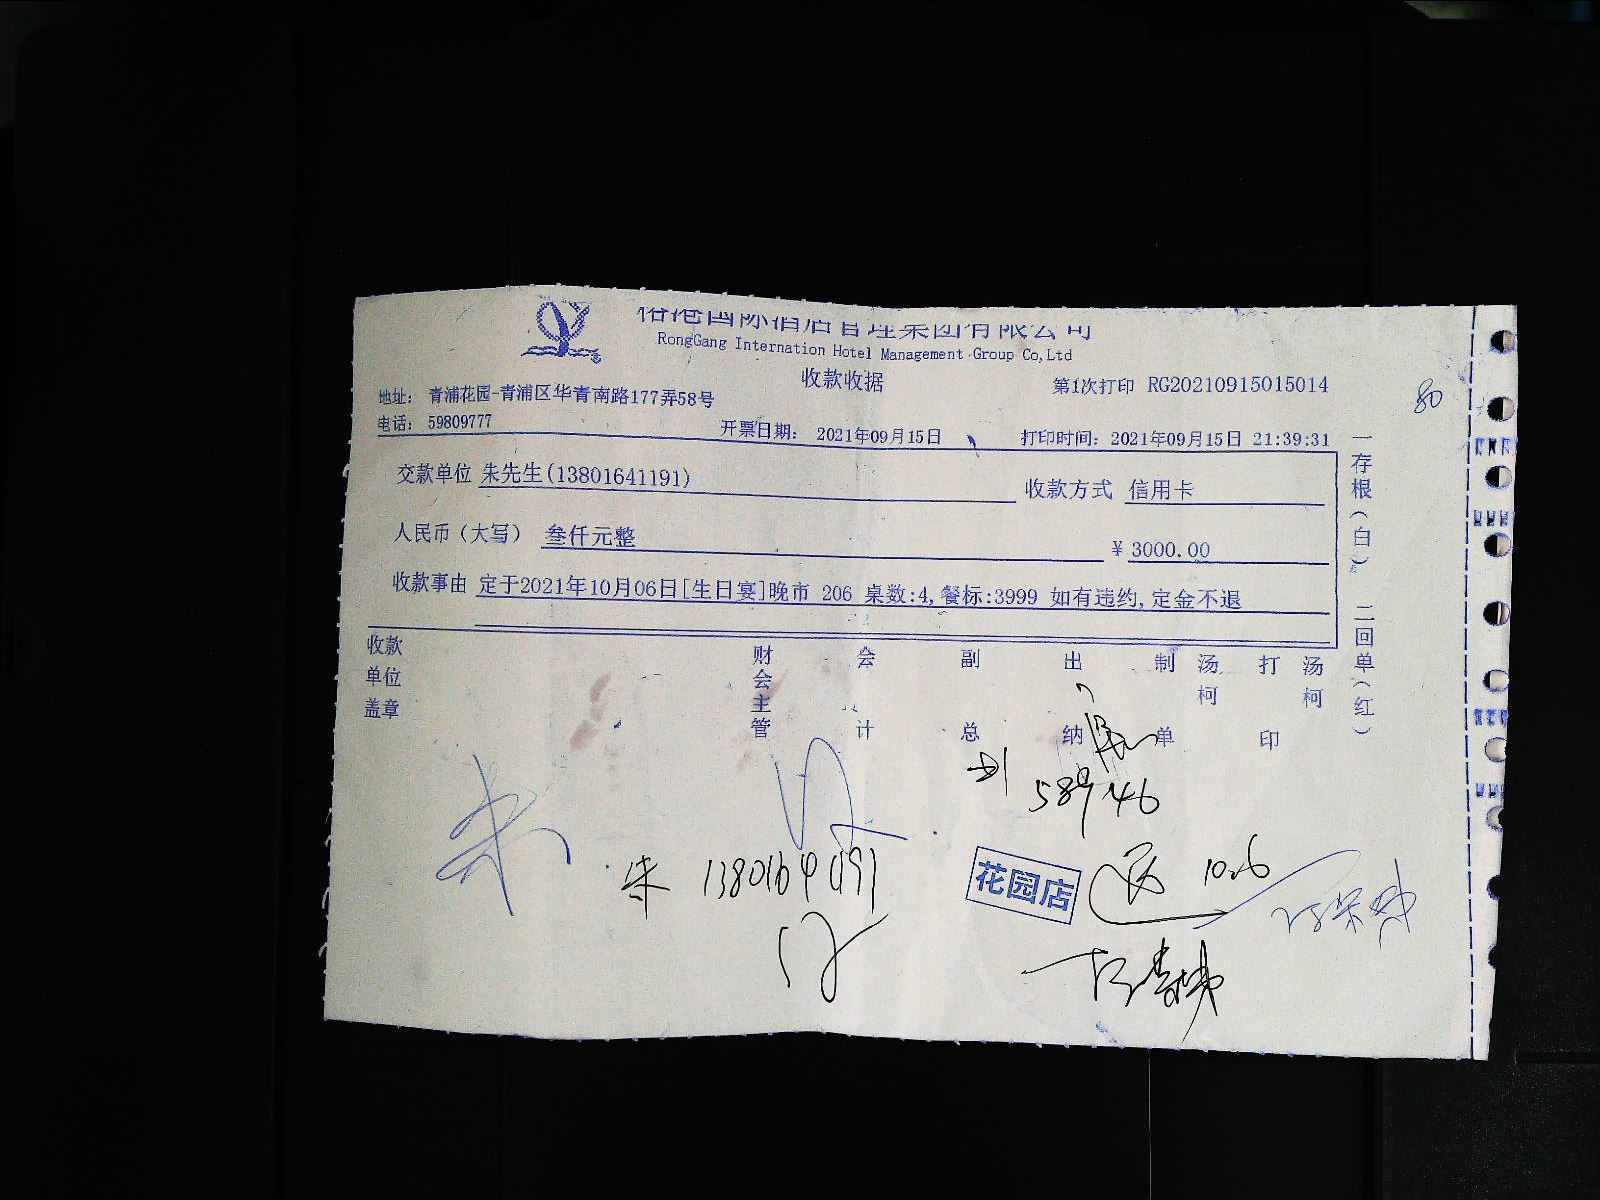 榕港国际酒店管理集团有限公司
RongGang Internation Hotel Management Group Co,Ltd
收款收据
第1次打印 RG20210915015014
80
地址: 青浦花园-青浦区华青南路177弄58号
电话: 59809777
开票日期: 2021年09月15日
打印时间: 2021年09月15日 21:39:31
交款单位 朱先生(13801641191)
收款方式 信用卡
人民币(大写) 叁仟元整
¥ 3000.00
收款事由 定于2021年10月06日[生日宴]晚市 206 桌数:4,餐标:3999 如有违约,定金不退
一存根(白) 二回单(红)
收款单位盖章
财会主管
会计
副总
出纳
制单
汤柯
打印
汤柯
58946
朱
朱 13801641191
花园店
10.6